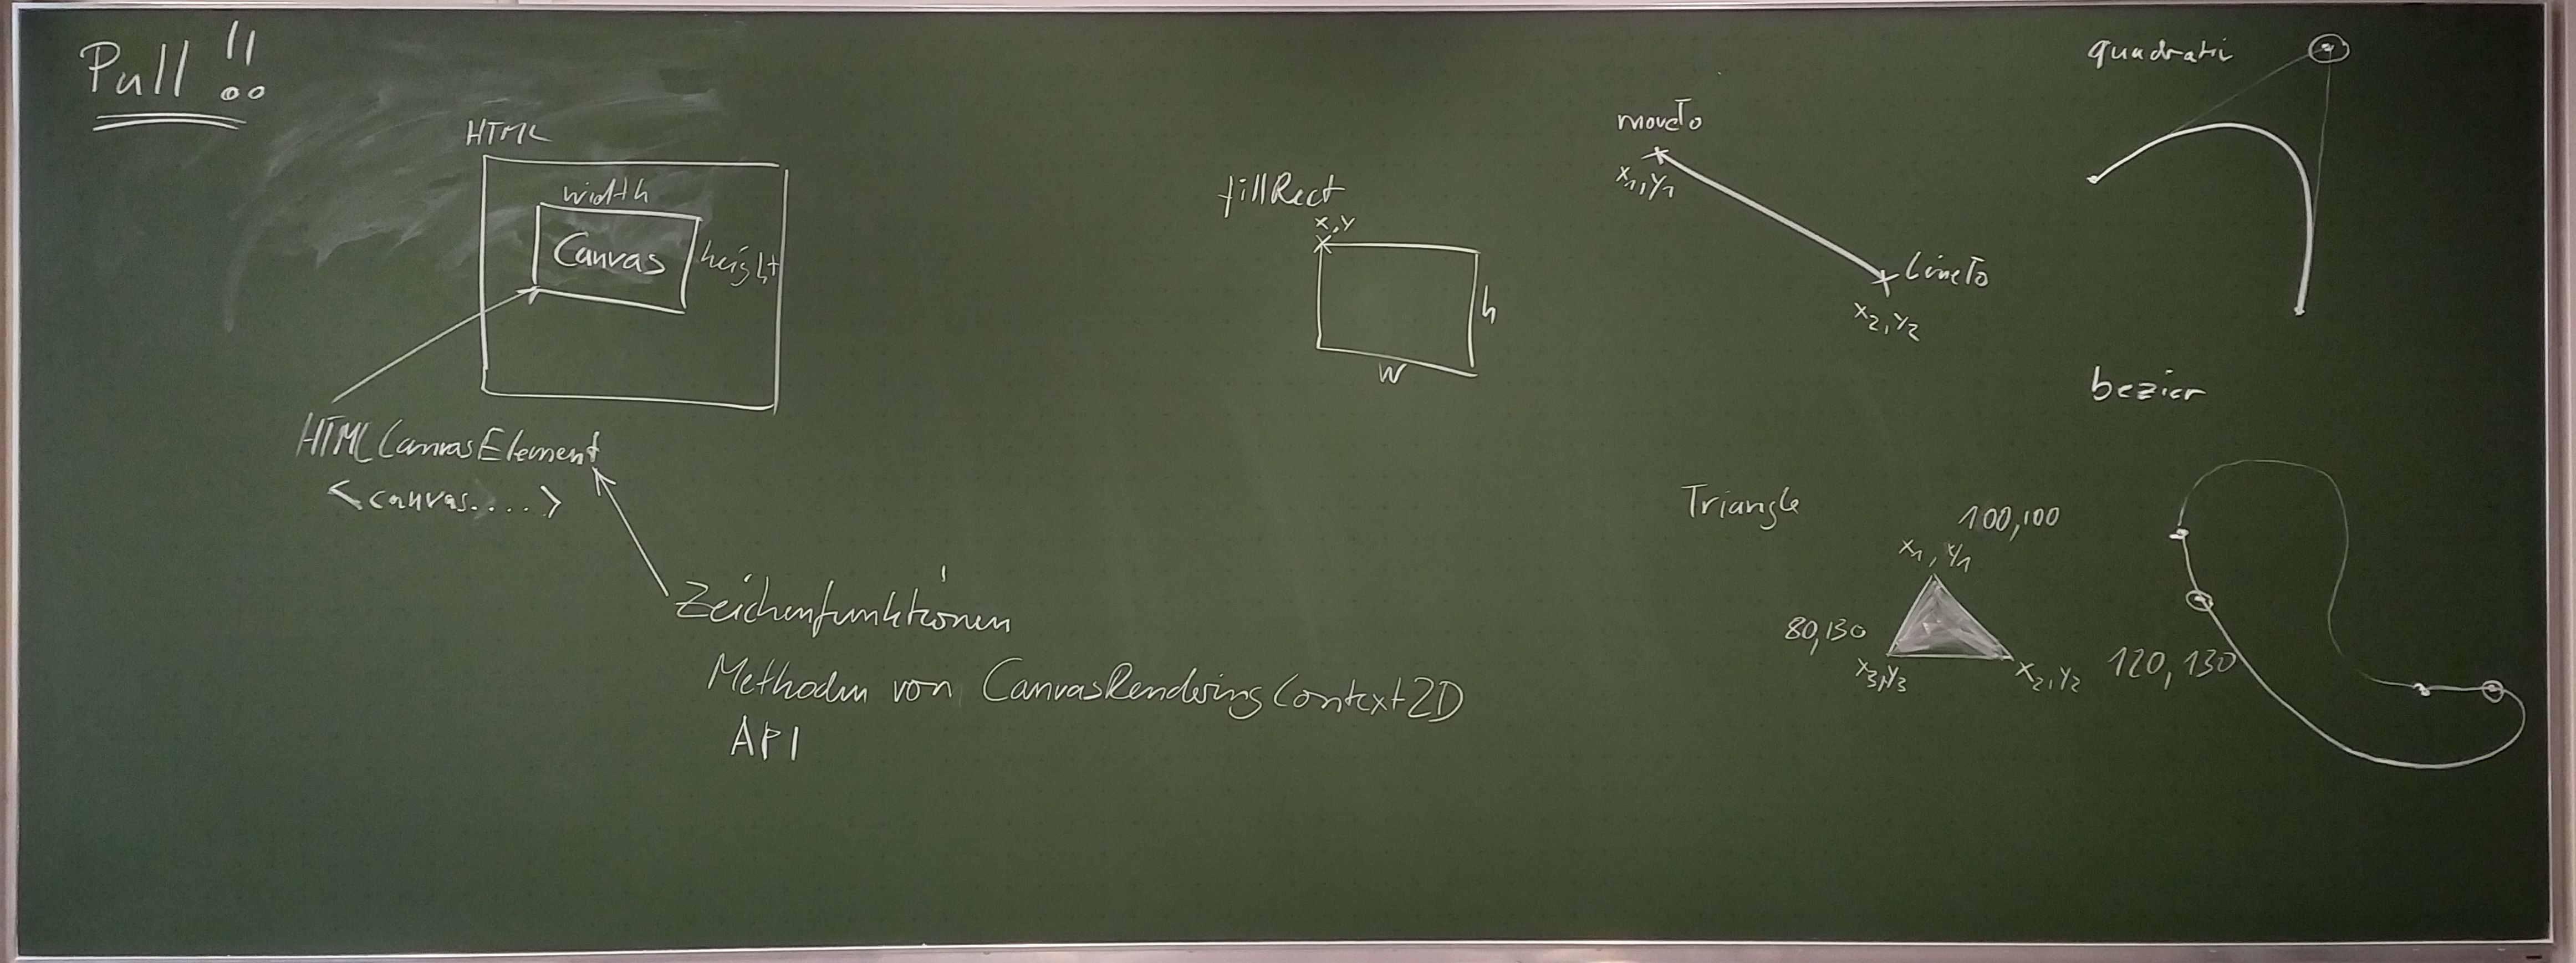 Pull !!
HTML
width
Canvas
height
HTMLCanvasElement
<canvas.....>
Zeichenfunktionen
Methoden von CanvasRenderingContext2D
API
fillRect
x,y
h
w
moveTo
x1,y1
LineTo
x2,y2
quadrati
bezier
Triangle
100,100
x1,y1
80,130
x3,y3
x2,y2
120,130